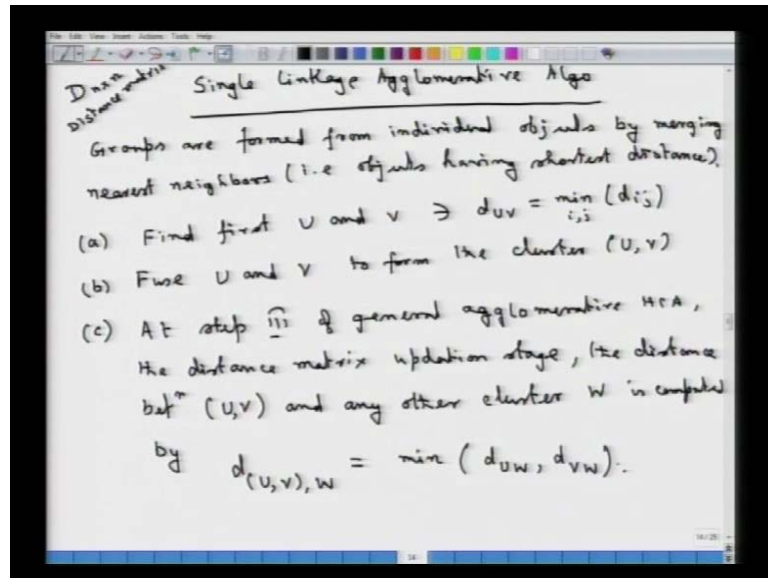 File Edit View Insert Actions Tools Help
D n×n
Distance matrix
Single Linkage Agglomerative Algo
Groups are formed from individual objects by merging
nearest neighbors (i.e objects having shortest distance).
(a) Find first U and V ∋ d_UV = min_{i,j} (d_ij)
(b) Fuse U and V to form the cluster (U,V)
(c) At step III of general agglomerative HCA,
the distance matrix updation stage, the distance
betⁿ (U,V) and any other cluster W is computed
by d_(U,V),W = min (d_UW, d_VW).
14